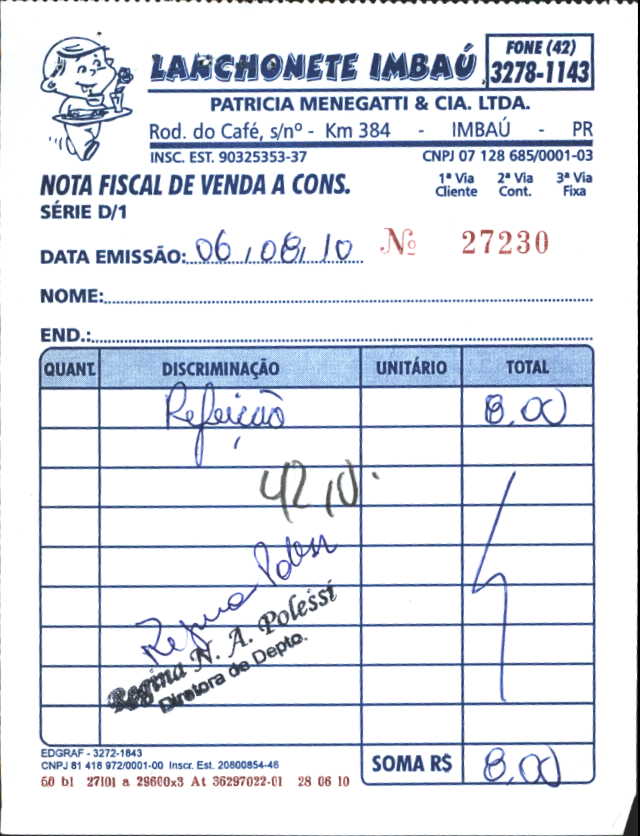 LANCHONETE IMBAÚ
FONE (42)
3278-1143
PATRICIA MENEGATTI & CIA. LTDA.
Rod. do Café, s/nº - Km 384 - IMBAÚ - PR
INSC. EST. 90325353-37 CNPJ 07 128 685/0001-03
NOTA FISCAL DE VENDA A CONS.
1ª Via Cliente 2ª Via Cont. 3ª Via Fixa
SÉRIE D/1
DATA EMISSÃO: 06/08/10 Nº 27230
NOME:
END.:
QUANT. DISCRIMINAÇÃO UNITÁRIO TOTAL
Refeição 8,00
Regina Polessi
Regina N. A. Polessi
Diretora de Depto.
EDGRAF - 3272-1843
CNPJ 81 418 972/0001-00 Inscr. Est. 20800854-46
50 b1 27101 a 29600x3 At 36297022-01 28 06 10
SOMA R$ 8,00